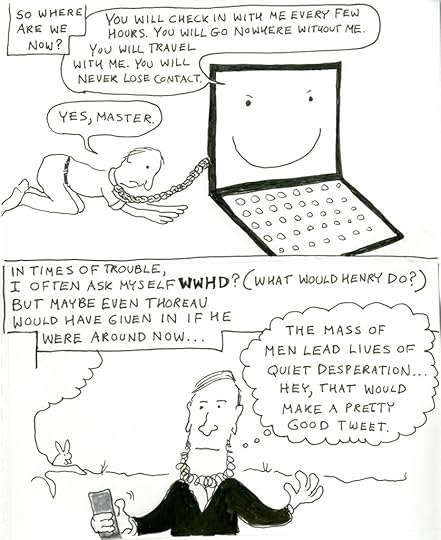 SO WHERE
ARE WE
NOW?
YOU WILL CHECK IN WITH ME EVERY FEW
HOURS. YOU WILL GO NOWHERE WITHOUT ME.
YOU WILL TRAVEL
WITH ME. YOU WILL
NEVER LOSE CONTACT.
YES, MASTER.
IN TIMES OF TROUBLE,
I OFTEN ASK MYSELF WWHD? (WHAT WOULD HENRY DO?)
BUT MAYBE EVEN THOREAU
WOULD HAVE GIVEN IN IF HE
WERE AROUND NOW...
THE MASS OF
MEN LEAD LIVES OF
QUIET DESPERATION...
HEY, THAT WOULD
MAKE A PRETTY
GOOD TWEET.